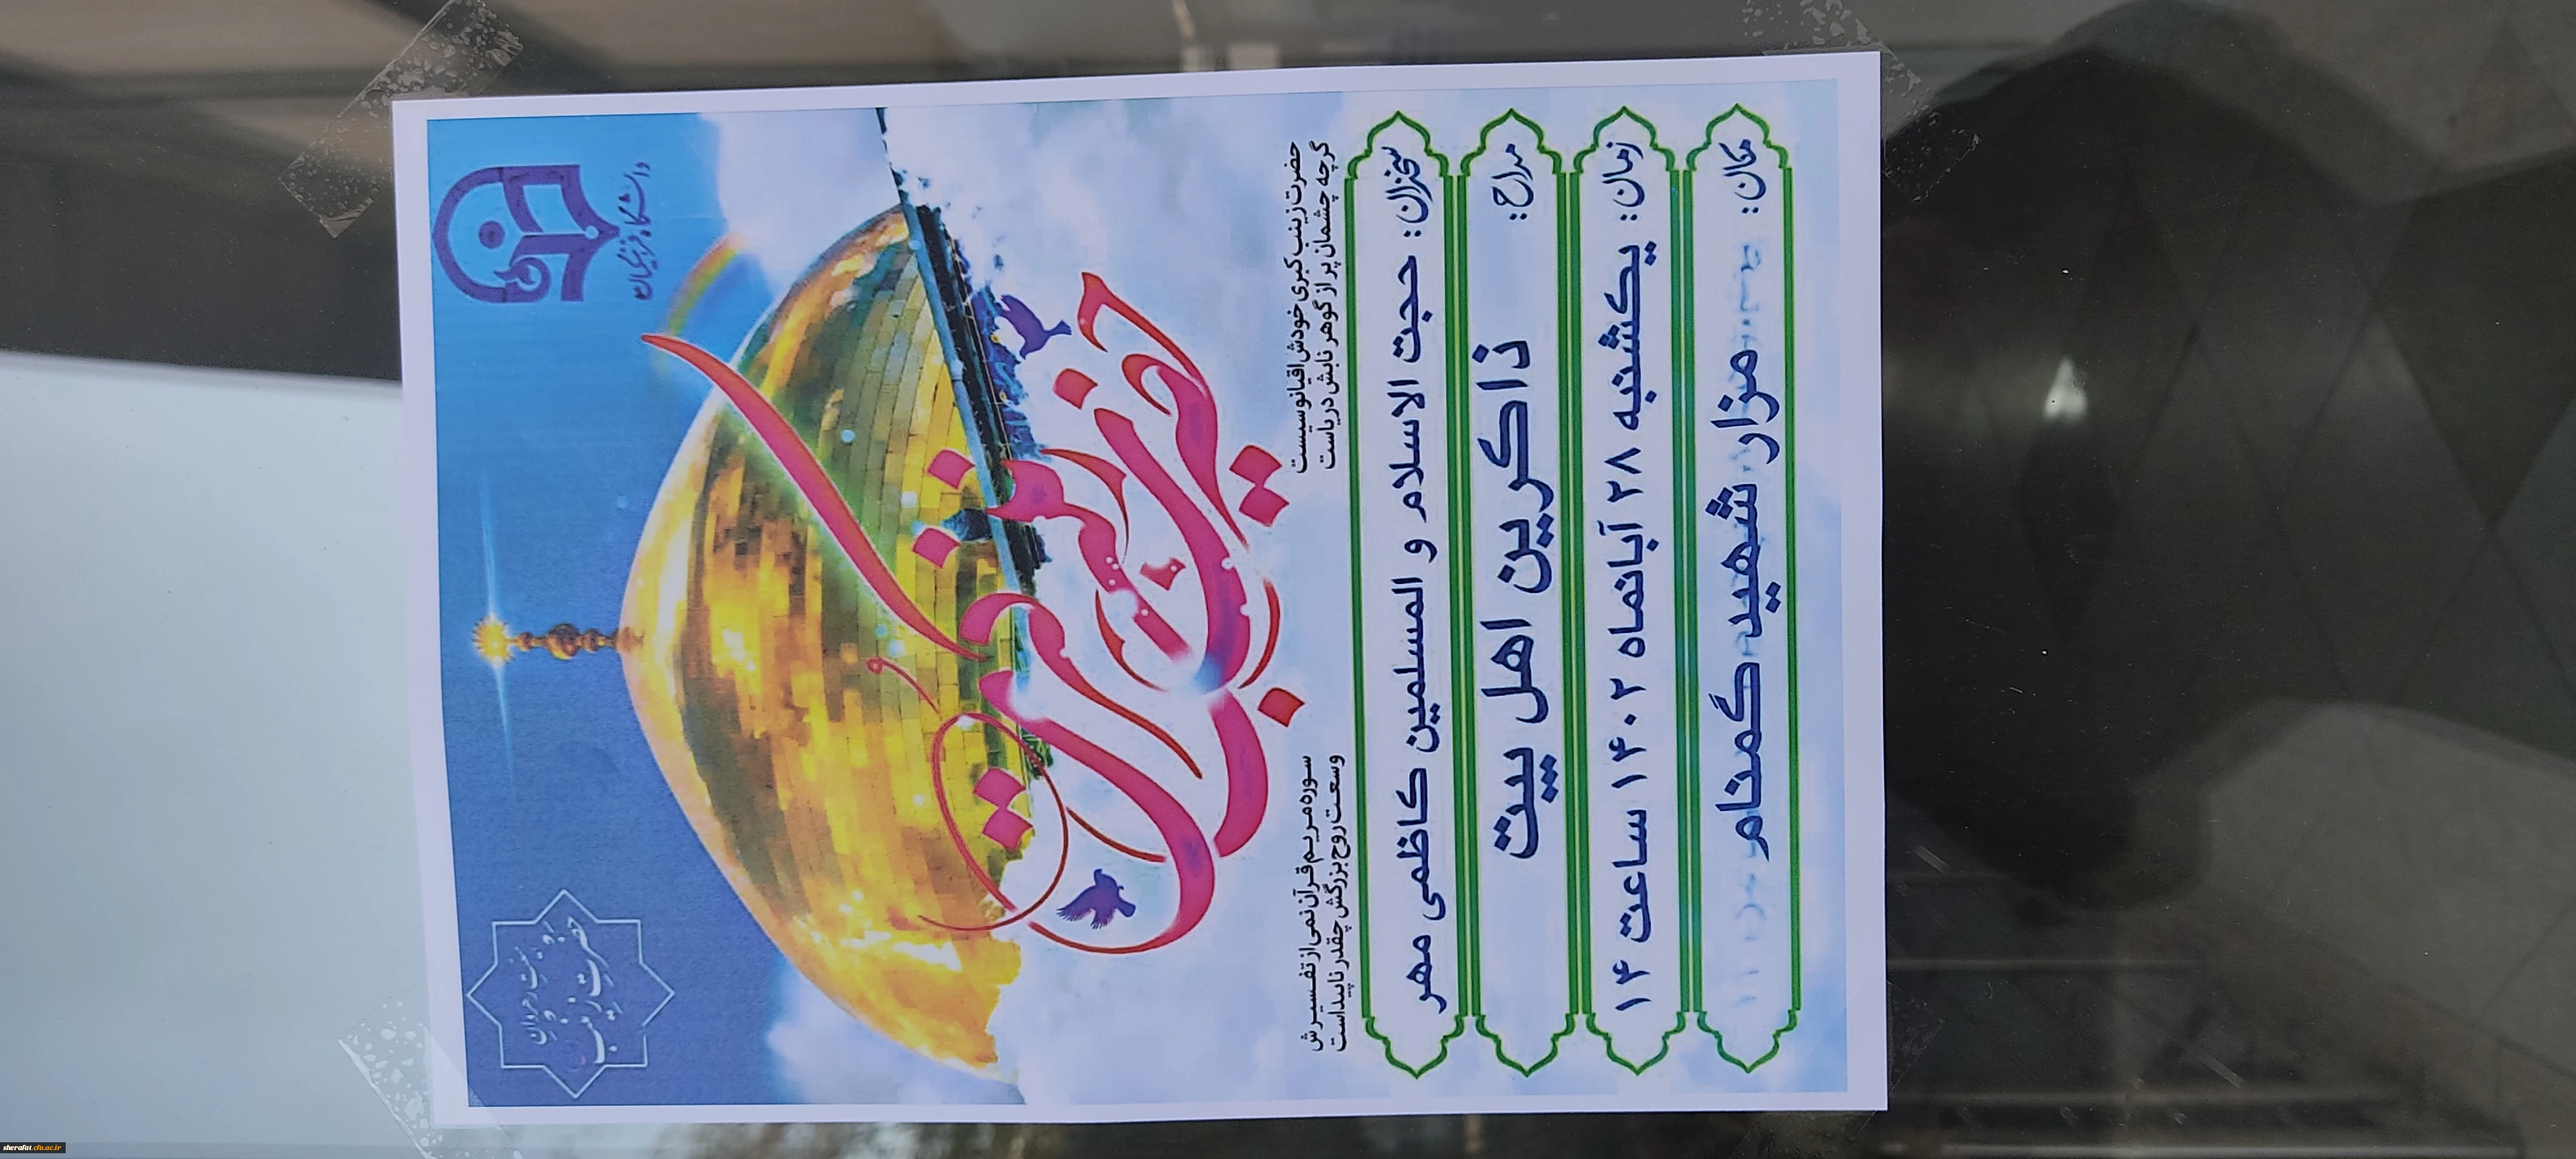 دانشگاه فرهنگیان
حضرت زینب
حضرت زینب کبری خودش اقیانوسیست
گرچه چشمان پر از گوهر نابش دریاست
سوره مریم قرآن نمی از تفسیرش
وسعت روح بزرگش چقدر ناپیداست
سخنران: حجت الاسلام و المسلمین کاظمی مهر
مداح: ذاکرین اهل بیت
زمان: یکشنبه ۲۸ آبانماه ۱۴۰۲ ساعت ۱۴
مکان: مزار شهید گمنام
sherafat.cfu.ac.ir